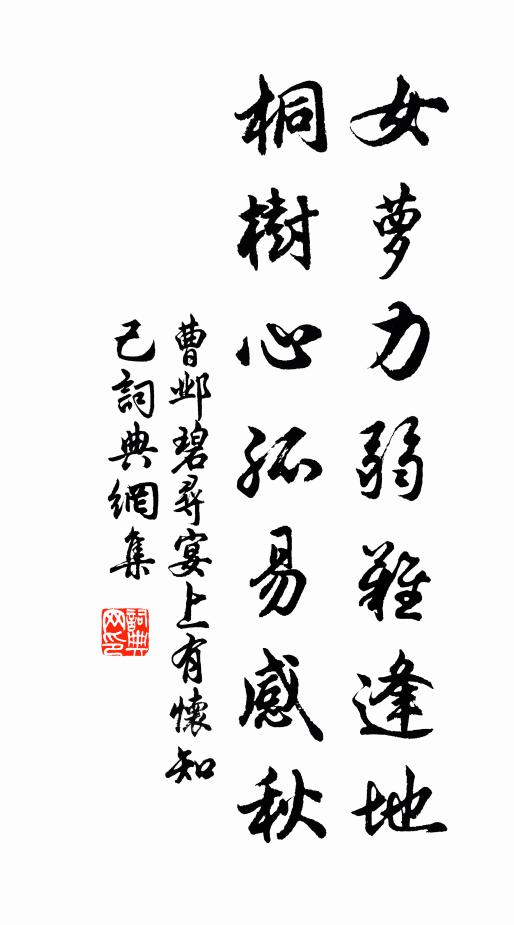 女萝力弱難逢地
桐樹心孤易感秋
曹邺碧尋宴上有懷知
己詞典網集
詞典
网印